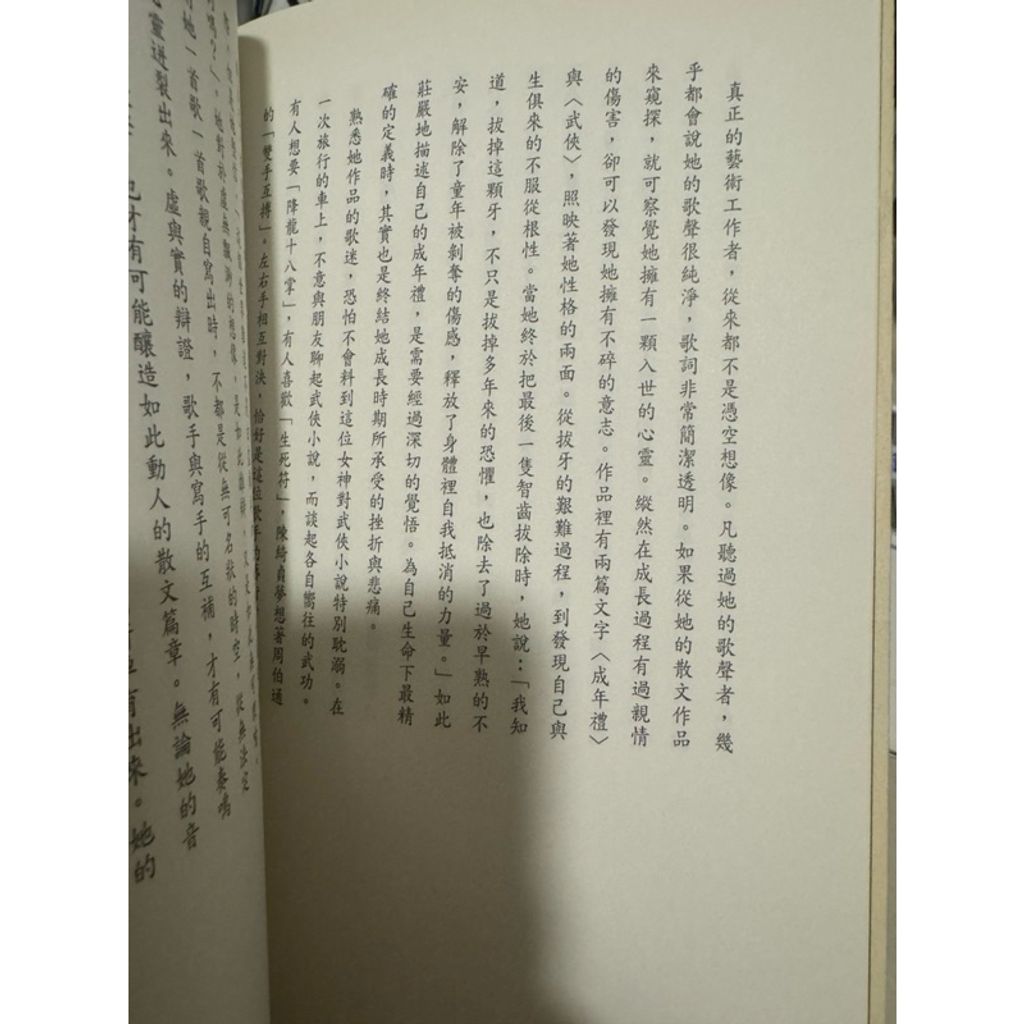 真正的藝術工作者，從來都不是憑空想像。凡聽過她的歌聲者，幾
乎都會說她的歌聲很純淨，歌詞非常簡潔透明。如果從她的散文作品
來窺探，就可察覺她擁有一顆入世的心靈。縱然在成長過程有過親情
的傷害，卻可以發現她擁有不碎的意志。作品裡有兩篇文字〈成年禮〉
與〈武俠〉，照映著她性格的兩面。從拔牙的艱難過程，到發現自己與
生俱來的不服從根性。當她終於把最後一隻智齒拔除時，她說：「我知
道，拔掉這顆牙，不只是拔掉多年來的恐懼，也除去了過於早熟的不
安，解除了童年被剝奪的傷感，釋放了身體裡自我抵消的力量。」如此
莊嚴地描述自己的成年禮，是需要經過深切的覺悟。為自己生命下最精
確的定義時，其實也是終結她成長時期所承受的挫折與悲痛。
熟悉她作品的歌迷，恐怕不會料到這位女神對武俠小說特別耽溺。在
一次旅行的車上，不意與朋友聊起武俠小說，而談起各自嚮往的武功。
有人想要「降龍十八掌」，有人喜歡「生死符」，陳綺貞夢想著周伯通
的「雙手互搏」。左右手相互對決，恰好是這位歌手的
她對於虛無飄渺的想像，是如此
一首歌一首歌親自寫出時，不都是從無可名狀的時空，從無法定
靈迸裂出來。虛與實的辯證，歌手與寫手的互補，才有可能奏鳴
也才有可能釀造如此動人的散文篇章。無論她的音
有出來。她的